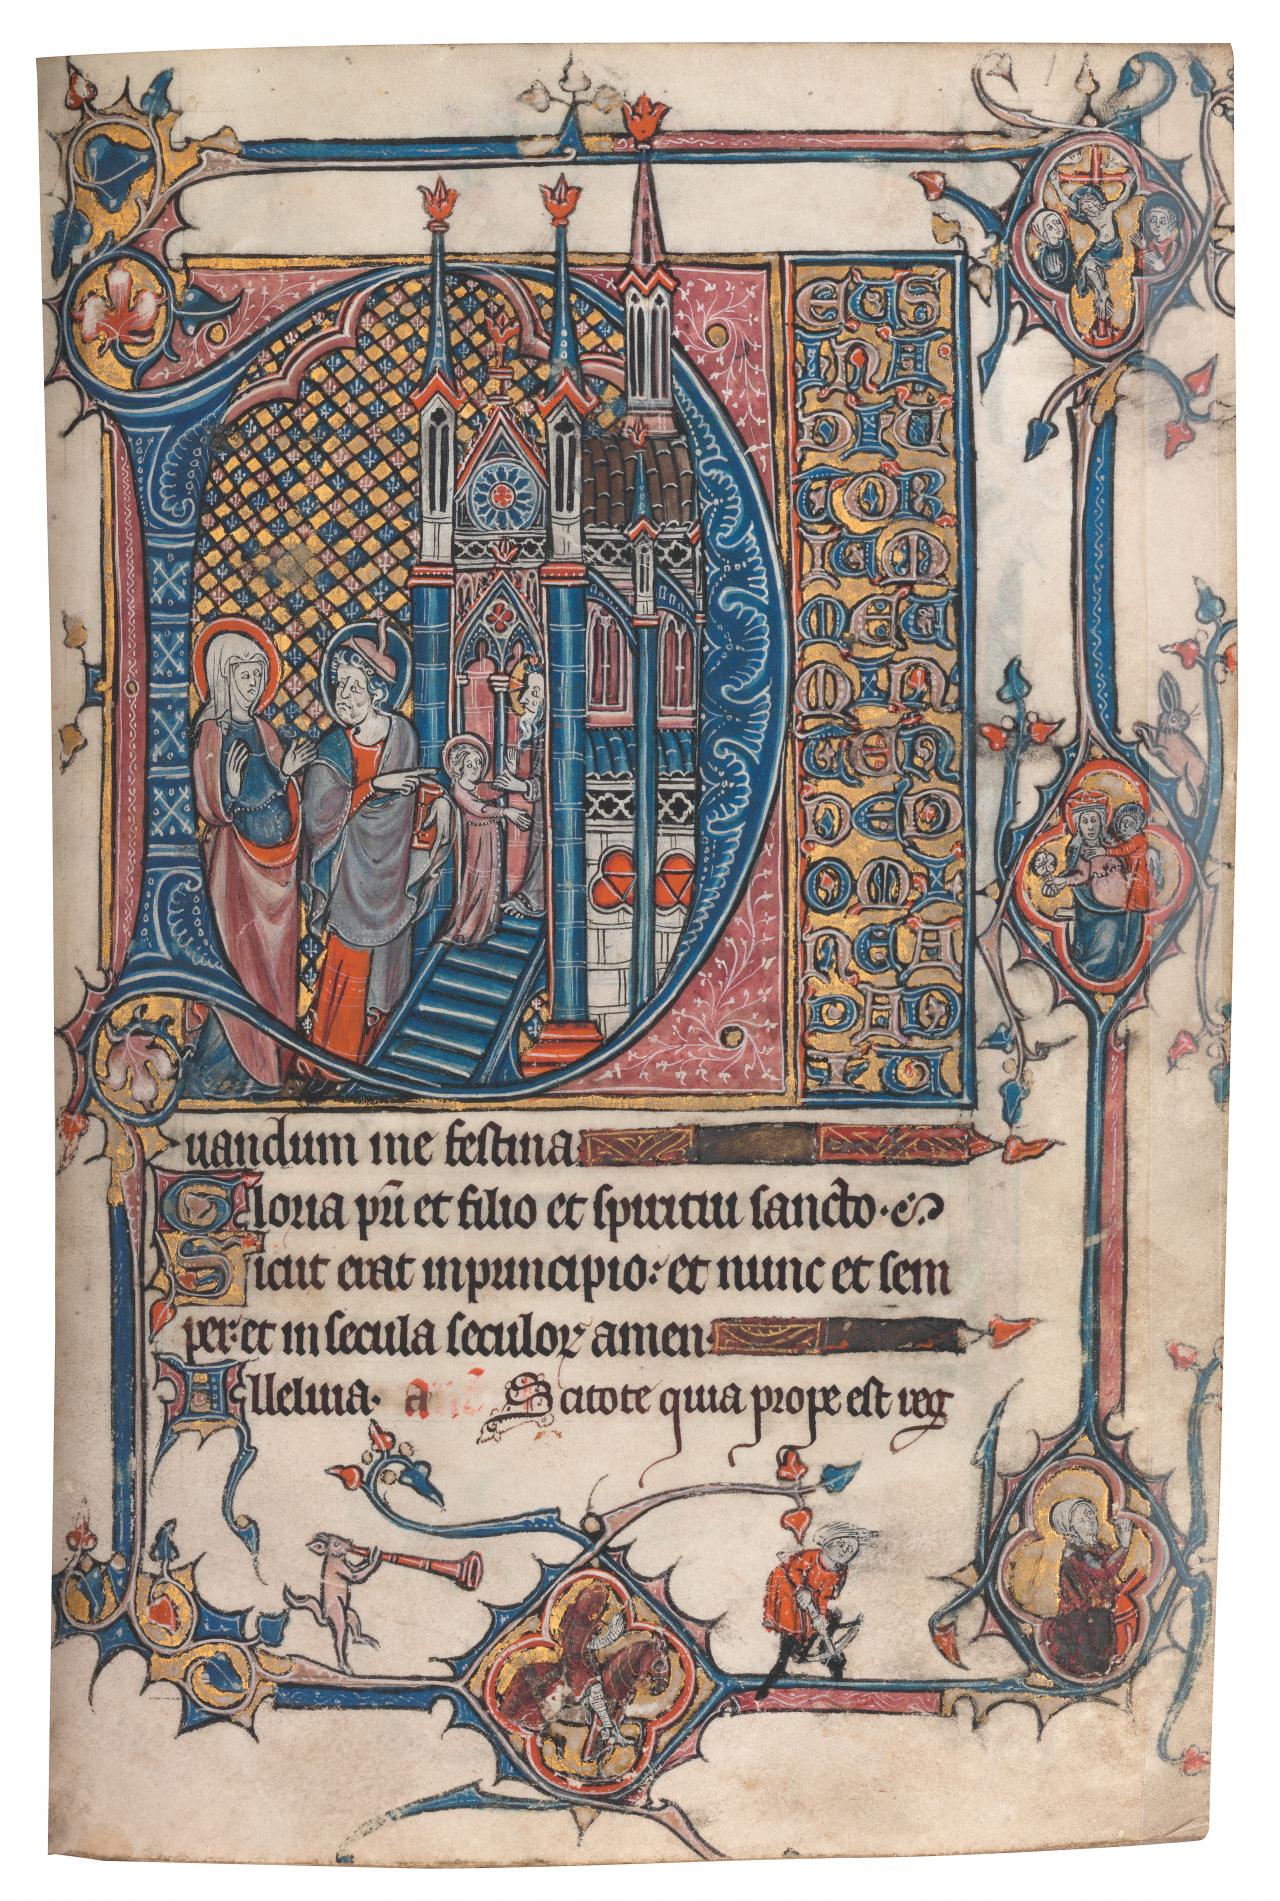 DEUS
INA
DIU
TOR
IUM
MEU
MIN
TEN
DED
OMI
NEA
DAD
IU
uandum me festina
Gloria pr̄i et filio et spiritui sancto.
Sicut erat inprincipio: et nunc et sem
per: et in secula seculoꝝ amen.
Alleluia. Scitote quia prope est reg